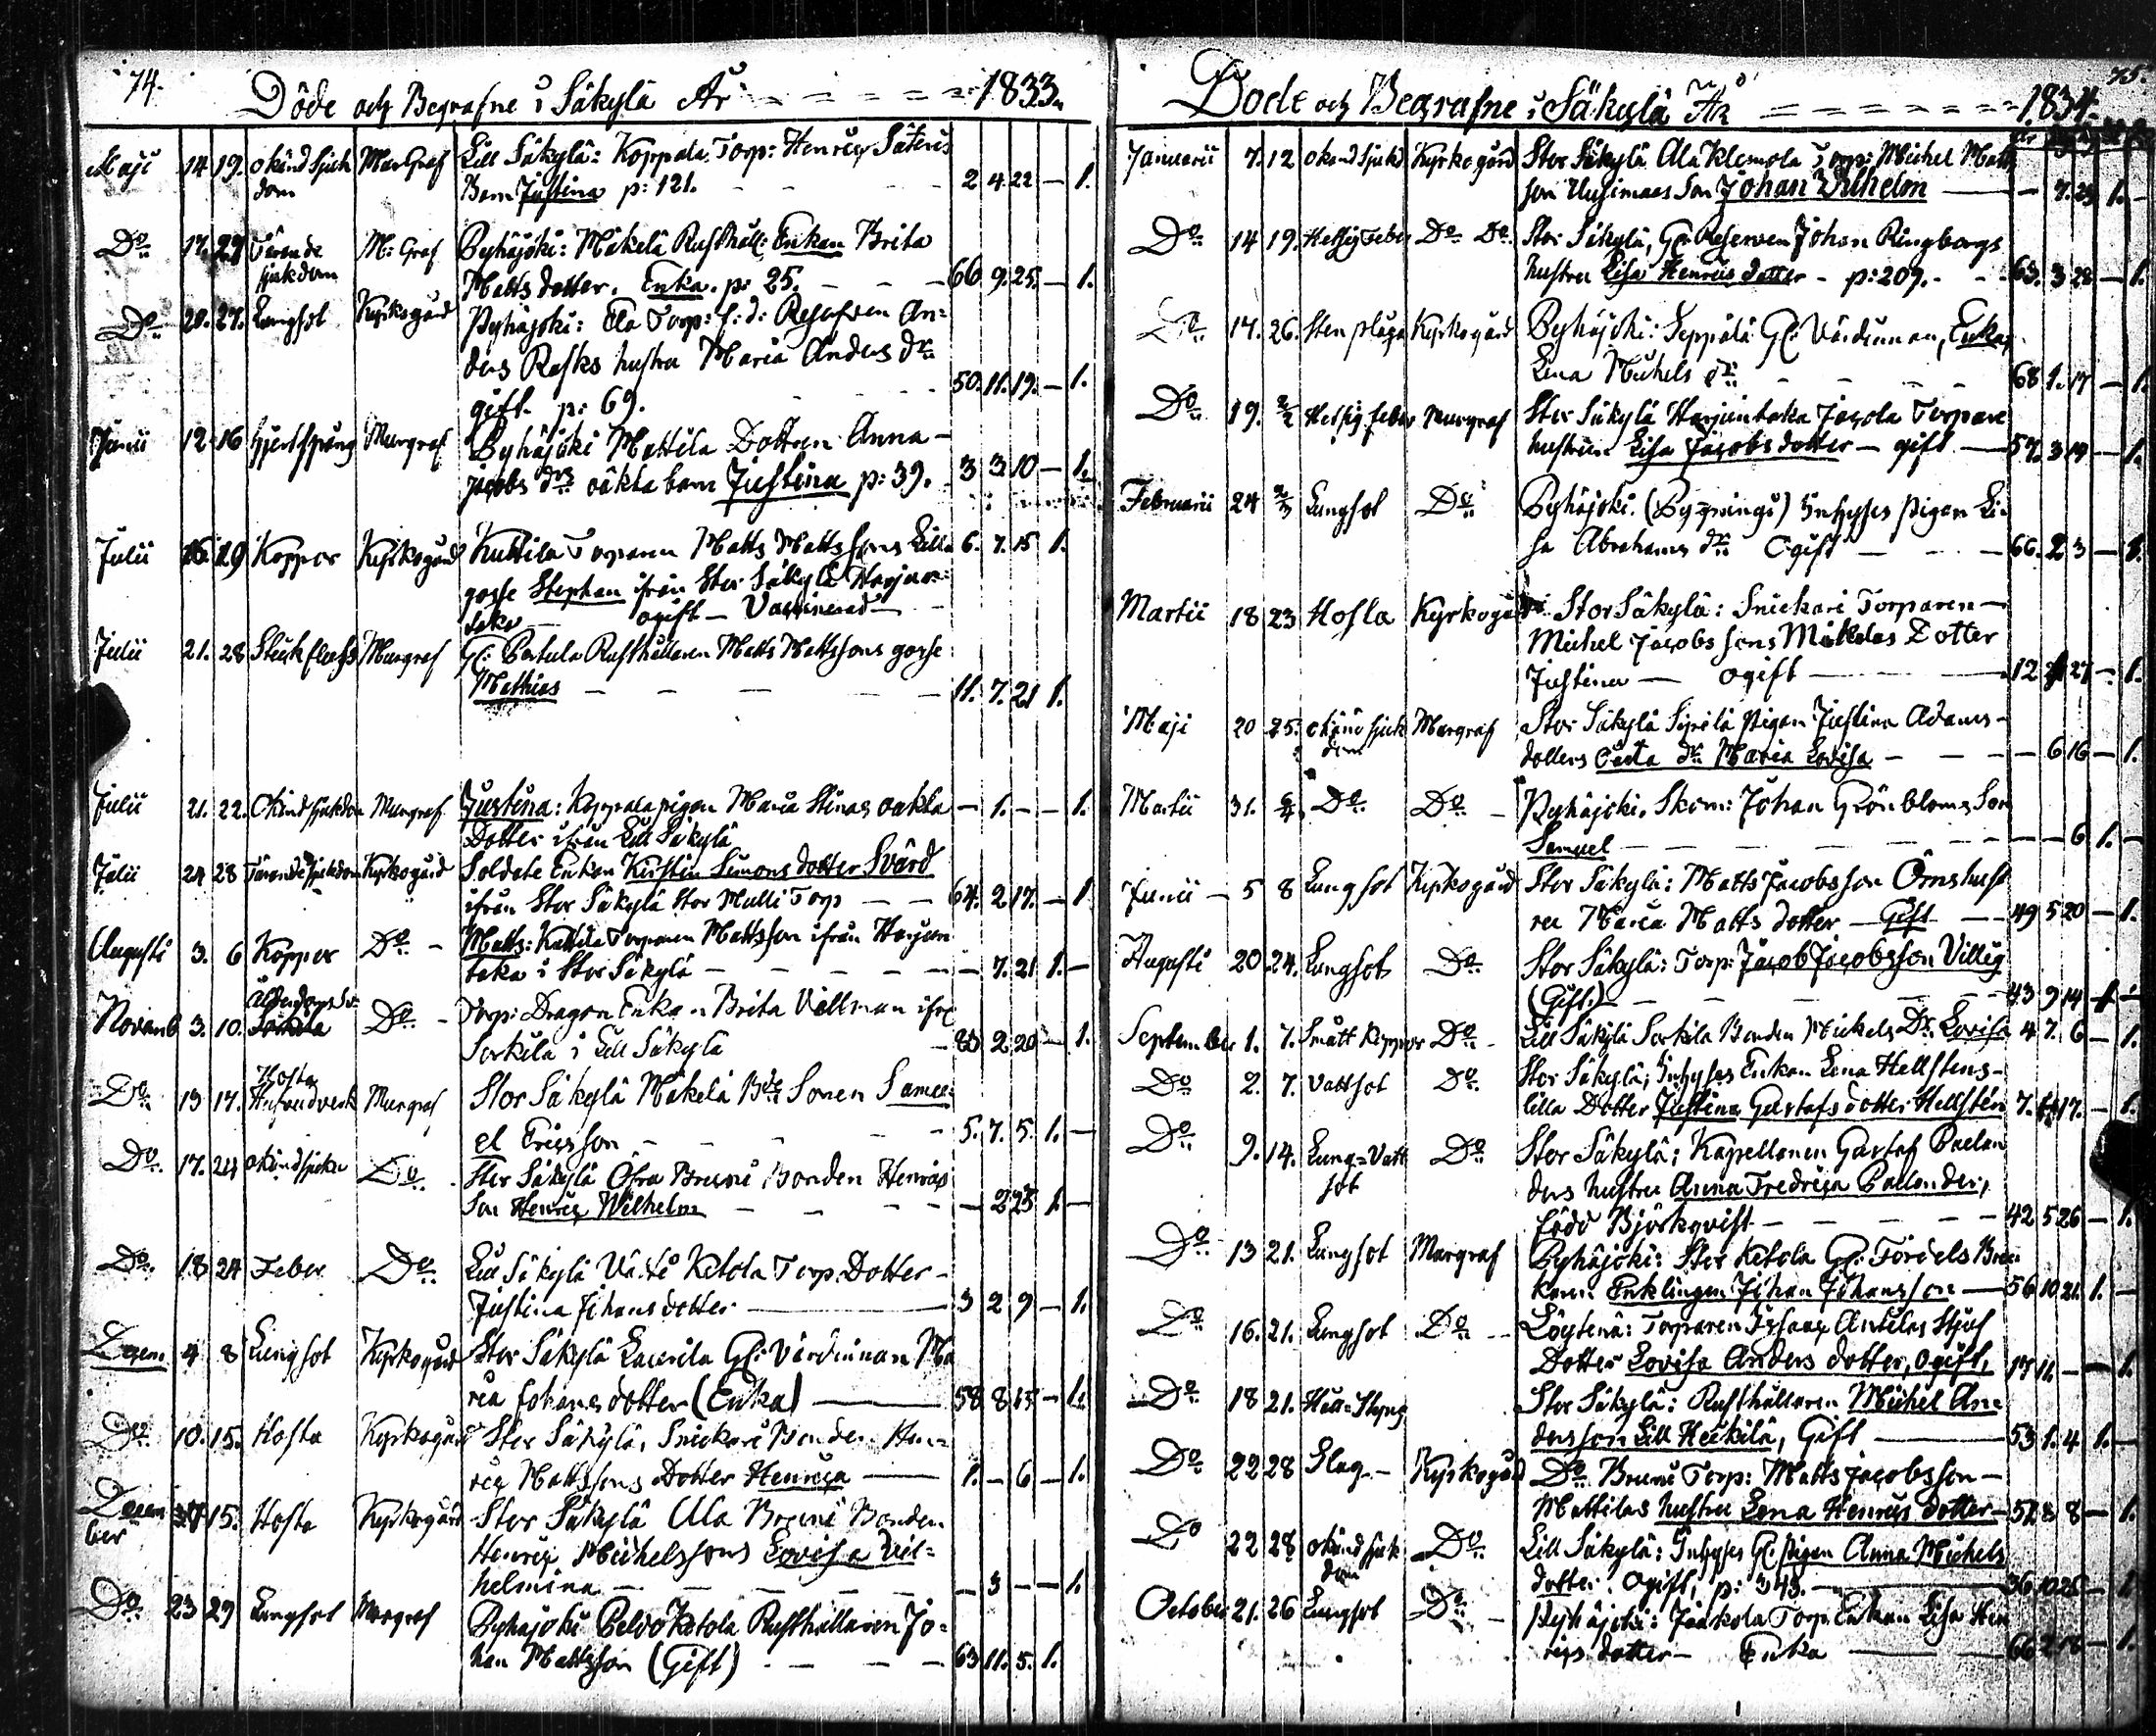 74.
Döde och Begrafne i Säkylä År 1833.
Maji 14 19. okänd sjuk Murgraf Lill Säkylä: Koppala Torp: Henric Säteris
dom Barn Justina p: 121. 2 4 22 — 1.
Do 17. 27 Tärande M: Graf Pyhäjoki: Mäkelä Rusthåll: Enkan Brita
sjukdom Matts dotter. Enka. p: 25. 66 9. 25. — 1.
Do 20. 27. Lungsot Kyrkogård Pyhäjoki: Torp: f: d: An=
ders Rasks hustru Maria Anders dr
gift p: 69. 50. 11. 19. — 1.
Junii 12 16 Murgraf Pyhäjoki Mattila Dottren Anna
Jacobs drs oäkta barn Justina p: 39. 3 3 10 — 1.
Julii 16 19 Koppor Kyrkogård Kuttila Torparen Matts Mattssons Lilla 6. 7. 15 1.
gosse Stephan ifrån Stor Säkylä Harjun
taka ogift — Vaccinerad —
Julii 21. 28 Murgraf Rusthållaren Matts Mattssons gosse
Mathias — — — — 11. 7. 21 1.
Julii 21. 22. Okänd sjukdom Murgraf Justina: Koppala pigan Maria Stinas oäkta — 1. — — 1.
Dotter ifrån Lill Säkylä
Julii 24 28 Tärande sjukdom Kyrkogård Soldats Enkan Kirstin Simons dotter Svärd
ifrån Stor Säkylä Stor Mulli Torp — — 64. 2 17. — 1
Augusti 3. 6 Koppor Do Matts: Kuttila Torparen Mattsson ifrån Harjun
taka i Stor Säkylä — — — — 7. 21 1. —
Novemb 3. 10. Do Torp: Dragon Enkan Brita Vallman ifrå
Sorkila i Lill Säkylä 83 2 20 — 1.
Hosta
Do 13 17. Murgraf Stor Säkylä Mäkelä Bde Sonen Samu=
el Ericsson — — — 5. 7. 5. 1. —
Do 17. 24 okänd sjukd Do Stor Säkylä Öfra Bruni Bonden Henrics
Son Henric Wilhelm — — — — 2 23 1. —
Do 18 24 Feber Do Lill Säkylä Ketola Torp. Dotter
Justina Johans dotter 3 2 9 — 1.
Decem 4 8 Lungsot Kyrkogård Stor Säkylä Laurila Gl: Värdinnan Ma
ria Johans dotter (Enka) 58 8 15 — 1.
Do 10. 15. Hosta Kyrkogård Stor Säkylä, Snickari Bonden Hen=
ric Mattssons Dotter Henrica 1. — 6 — 1.
Decem 15. Hosta Kyrkogård Stor Säkylä Ala Bruni Bonden
ber Henric Michelssons Lovisa Vil=
helmina — — — — 3 — — 1.
Do 23 29 Lungsot Murgraf Pyhäjoki Peldo Ketola Rusthållaren Jo=
han Mattsson (Gift) — — — 63 11. 5. 1.
75.
Döde och Begrafne i Säkylä År 1834.
Januarii 7. 12 okänd sjukd Kyrkogård Stor Säkylä Ala Klemola Torp: Michel Matts
son Uusimaas Son Johan Vilhelm — — 7. 23 1. —
Do 14 19. Hetsig Feber Do Do Stor Säkylä, Johan Ringbergs
hustru Lisa Henrics dotter — p: 207. 63. 3 28 — 1.
Do 17. 26. Sten plåga Kyrkogård Pyhäjoki: Seppälä Gl: Värdinnan, Enkan
Lena Michels dr — — — 68 1. 17 — 1.
Do 19. 2/2 Hetsig feber Murgraf Stor Säkylä Harjuntaka Torpare
hustrun Lisa Jacobs dotter — gift — 57. 3 19 — 1.
Februarii 24 2/3 Lungsot Do Pyhäjoki. Inhyses pigan Li=
sa Abrahams dr Ogift — — 66. 2 3 — 1.
Martii 18 23 Hosta Kyrkogård Stor Säkylä: Snickari Torparen
Michel Jacobssons Mickelas Dotter
Justina — ogift — 12 27 — 1.
Maji 20 25. okänd sjuk Murgraf Stor Säkylä pigan Justina Adams
dom dotters Oäkta dr Maria Lovisa — — 6 16 — 1.
Martii 31. 6/4 Do Do Pyhäjoki. Skom: Johan Grönbloms Son
Samuel — — — — 6 1. —
Junii 5 8 Lungsot Kyrkogård Stor Säkylä: Matts Jacobsson Örns hust
ru Maria Matts dotter — Gift — 49 5 20 — 1.
Augusti 20 24. Lungsot Do Stor Säkylä: Torp: Jacob Jacobsson Villig
(Gift.) — — — — 43 9 14 1 —
September 1. 7. Smått Koppor Do Lill Säkylä Sorkila Bonden Michels Dr Lovisa 4 7. 6 — 1.
Do 2. 7. Vattsot Do Stor Säkylä; Inhyses Enkan Lena Hellstens
lilla Dotter Justina Gustafs dotter Hellstén 7. 17. — 1.
Do 9. 14. Lung=Vatt Do Stor Säkylä; Kapellanen Gustaf Paelan
sot ders hustru Anna Fredrica Paelander,
född Björkqvist — — — 42 5 26 — 1.
Do 13 21. Lungsot Murgraf Pyhäjoki: Stor Ketola Gl: Fördels
karen Enklingen Johan Johansson — 56 10 21. 1. —
Do 16. 21. Lungsot Do Löytenä: Torparen Isaac Anttilas Stjuf
Dotter Lovisa Anders dotter, ogift, 17 11. — — 1.
Do 18 21. Håll-Styng Stor Säkylä: Rusthållaren Michel An=
dersson Lill Heikilä, Gift — 53 1. 4 1. —
Do 22 28 Slag Kyrkogård Do Bruni Torp: Matts Jacobsson
Mattilas hustru Lena Henrics dotter — 8 — 1.
Do 22 28 okänd sjuk Do Lill Säkylä: Inhyses Gl. pigan Anna Michels
dom dotter. Ogift, p: 343. — 36 10 25 — 1
October 21. 26 Lungsot Do Pyhäjoki: Jaakola Torp. Enkan Lisa Hen
rics dotter — Enka — 66 — 1.